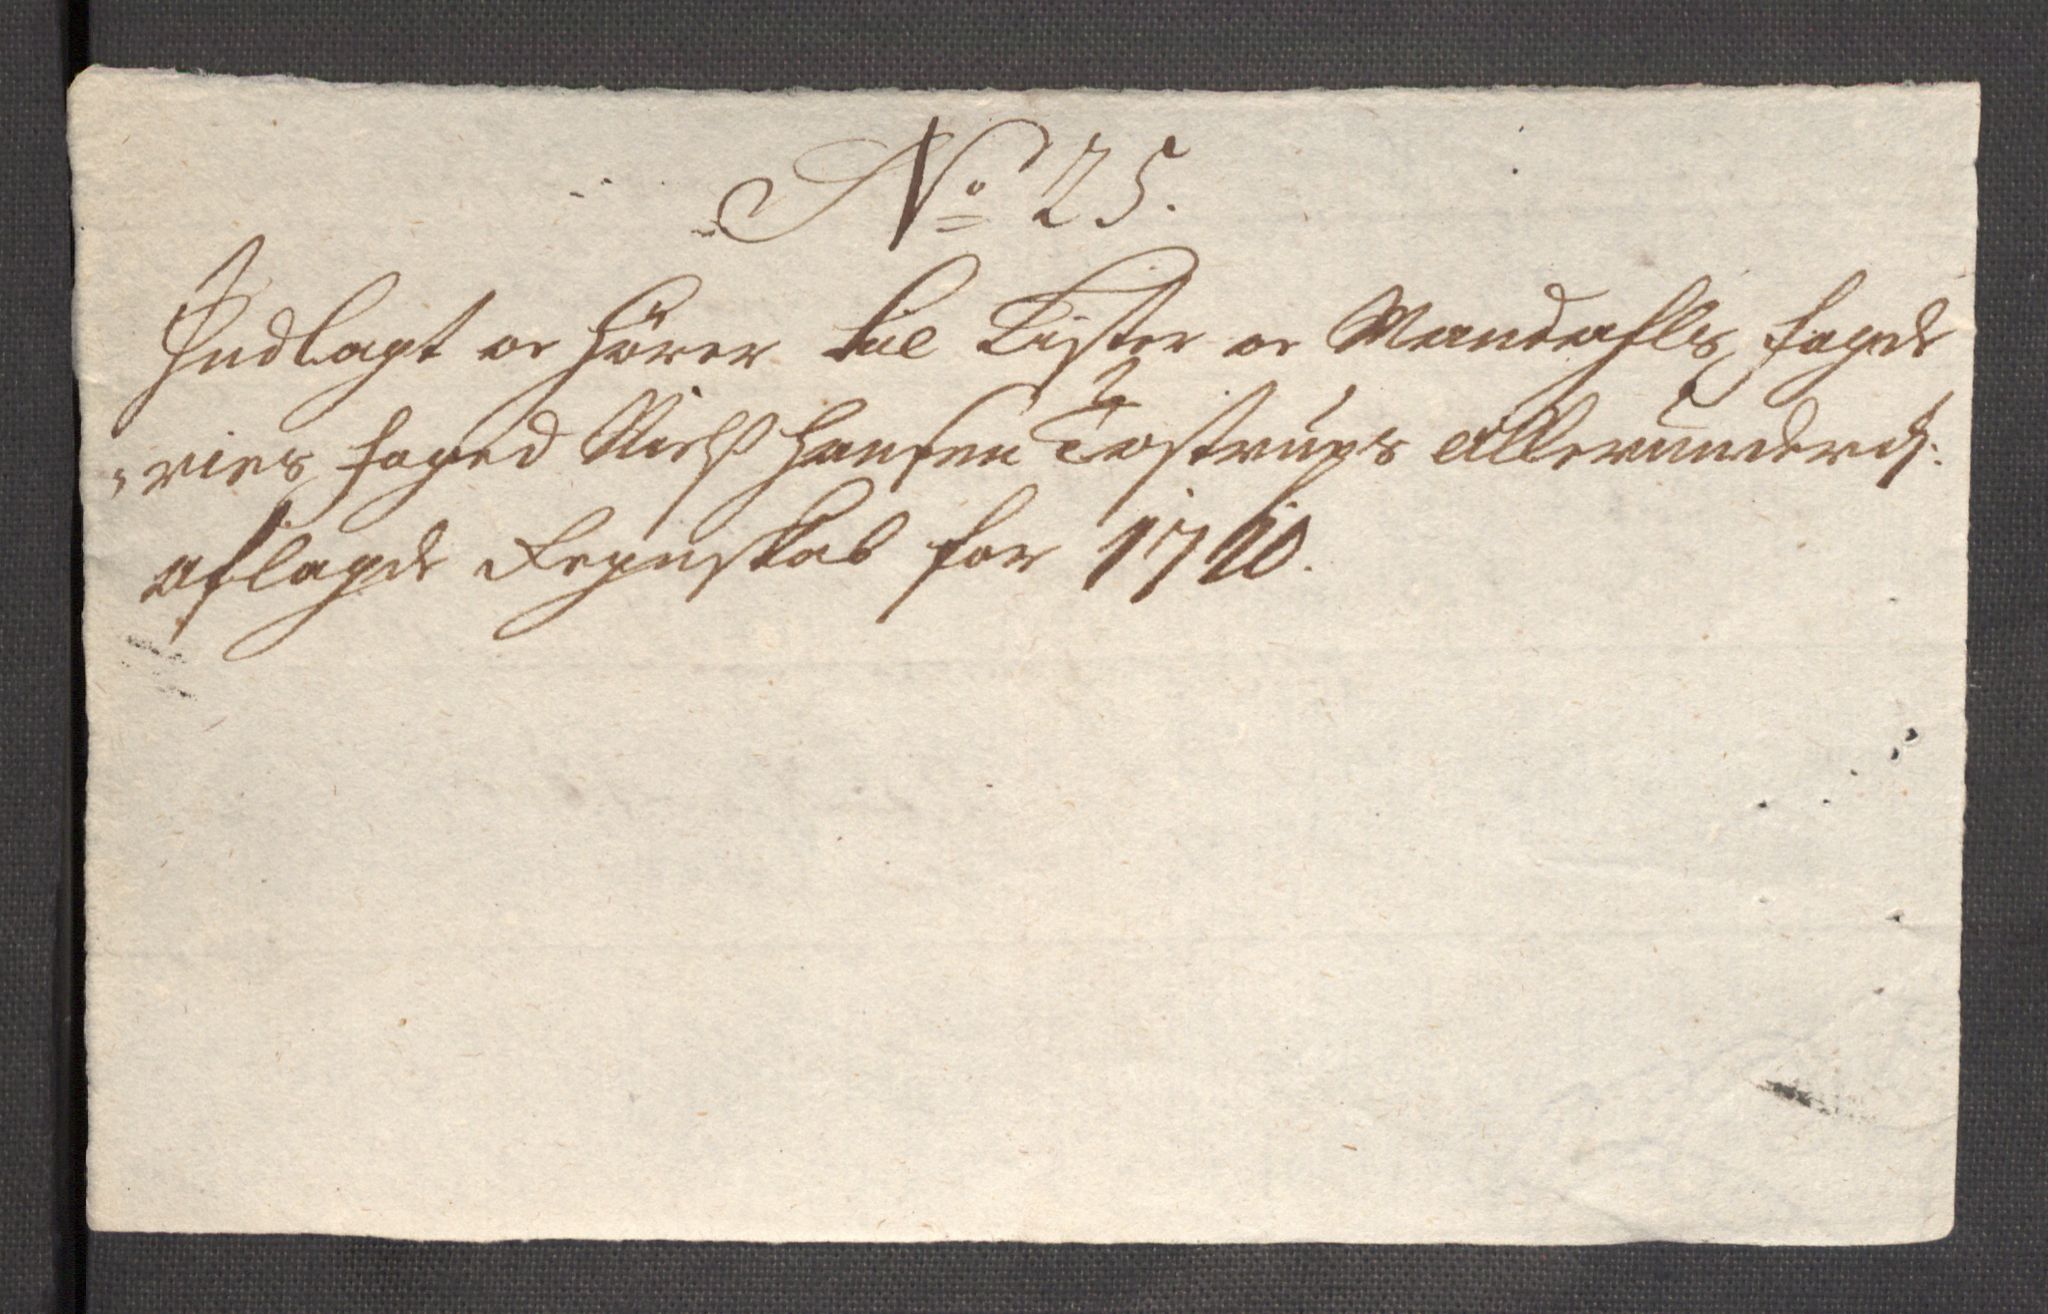 No 25.
Indlagt oc hörer til Lister oc Mandahls fogde
-ries foged Niels Hansen Tostrups allerunderd:
aflagde Regnskab for 1710.